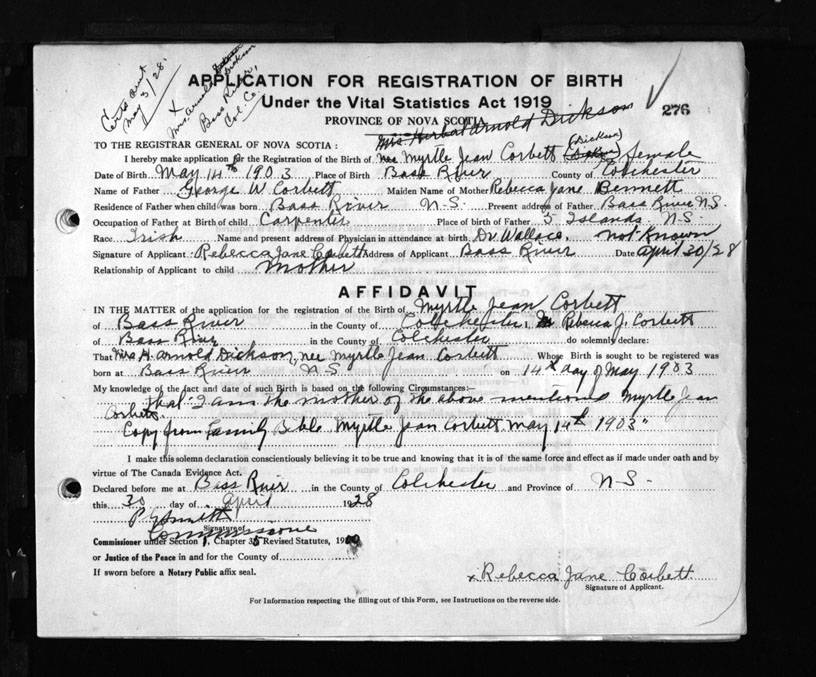 Cert sent
May 3/28.
x
Mrs. Arnold Dickson
Bass River,
Col. Co.
APPLICATION FOR REGISTRATION OF BIRTH
Under the Vital Statistics Act 1919
276
PROVINCE OF NOVA SCOTIA
Mrs Herbert Arnold Dickson
TO THE REGISTRAR GENERAL OF NOVA SCOTIA:
I hereby make application for the Registration of the Birth of nee Myrtle Jean Corbett (Dickson) female
Date of Birth May 14th 1903 Place of Birth Bass River County of Colchester
Name of Father George W. Corbett Maiden Name of Mother Rebecca Jane Bennett
Residence of Father when child was born Bass River N-S. Present address of Father Bass River N.S.
Occupation of Father at Birth of child Carpenter Place of birth of Father 5 Islands. N.S.
Race Irish Name and present address of Physician in attendance at birth Dr. Wallace. not Known
Signature of Applicant Rebecca Jane Corbett Address of Applicant Bass River Date April 30/28
Relationship of Applicant to child Mother
AFFIDAVIT
IN THE MATTER of the application for the registration of the Birth of Myrtle Jean Corbett
of Bass River in the County of Colchester I, Rebecca J. Corbett
of Bass River in the County of Colchester do solemnly declare:
That Mrs H. Arnold Dickson, nee Myrtle Jean Corbett Whose Birth is sought to be registered was
born at Bass River N S on 14th day of May 1903
My knowledge of the fact and date of such Birth is based on the following Circumstances:—
that I am the mother of the above mentioned Myrtle Jean
Corbett.
Copy from Family Bible "Myrtle Jean Corbett May 14th 1903"
I make this solemn declaration conscientiously believing it to be true and knowing that it is of the same force and effect as if made under oath and by
virtue of The Canada Evidence Act.
Declared before me at Bass River in the County of Colchester and Province of N-S-
this 30 day of April 1928
Signature of
Commissione
Commissioner under Section 1, Chapter 35 Revised Statutes, 1900
or Justice of the Peace in and for the County of
If sworn before a Notary Public affix seal.
x Rebecca Jane Corbett
Signature of Applicant.
For Information respecting the filling out of this Form, see Instructions on the reverse side.